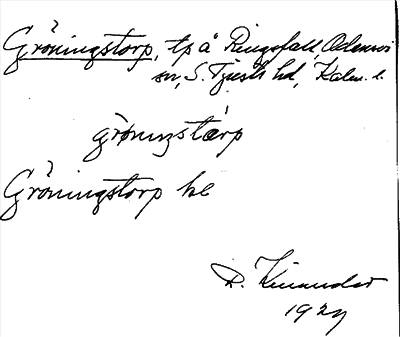 Gröningstorp, tp å Ringsfall, Odensvi
sn, S. Tjusts hd, Kalm. l.
grönıŋstàrp
Gröningstorp kl
R. Kinander
1927